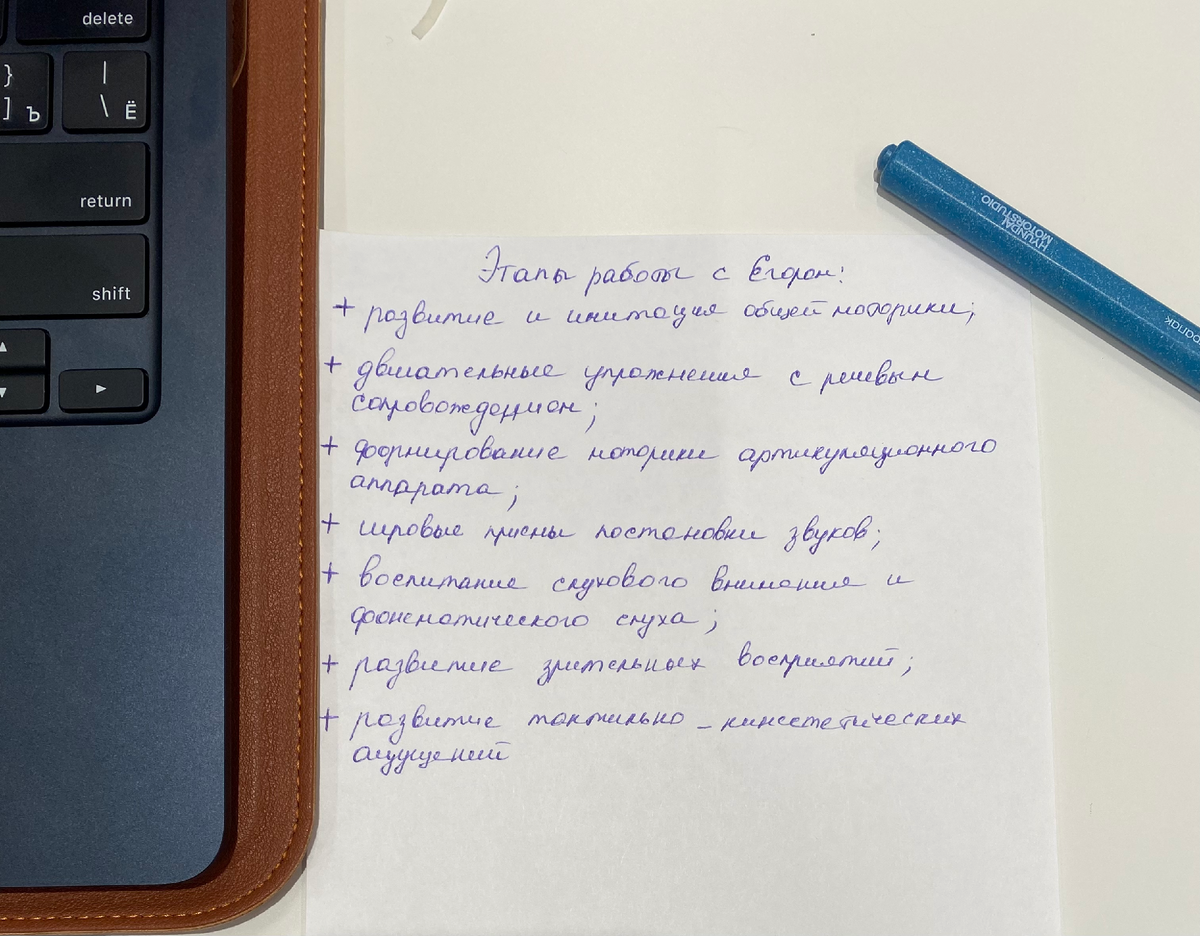 delete
}
] Ъ
|
\ Ё
return
shift
HYUNDAI
MOTORSTUDIO.
Этапы работы с Егором:
+ развитие и имитация общей моторики;
+ двигательные упражнения с речевым
сопровождением;
+ формирование моторики артикуляционного
аппарата;
+ игровые приемы постановки звуков;
+ воспитание слухового внимания и
фонематического слуха;
+ развитие зрительных восприятий;
+ развитие тактильно - кинестетических
ощущений